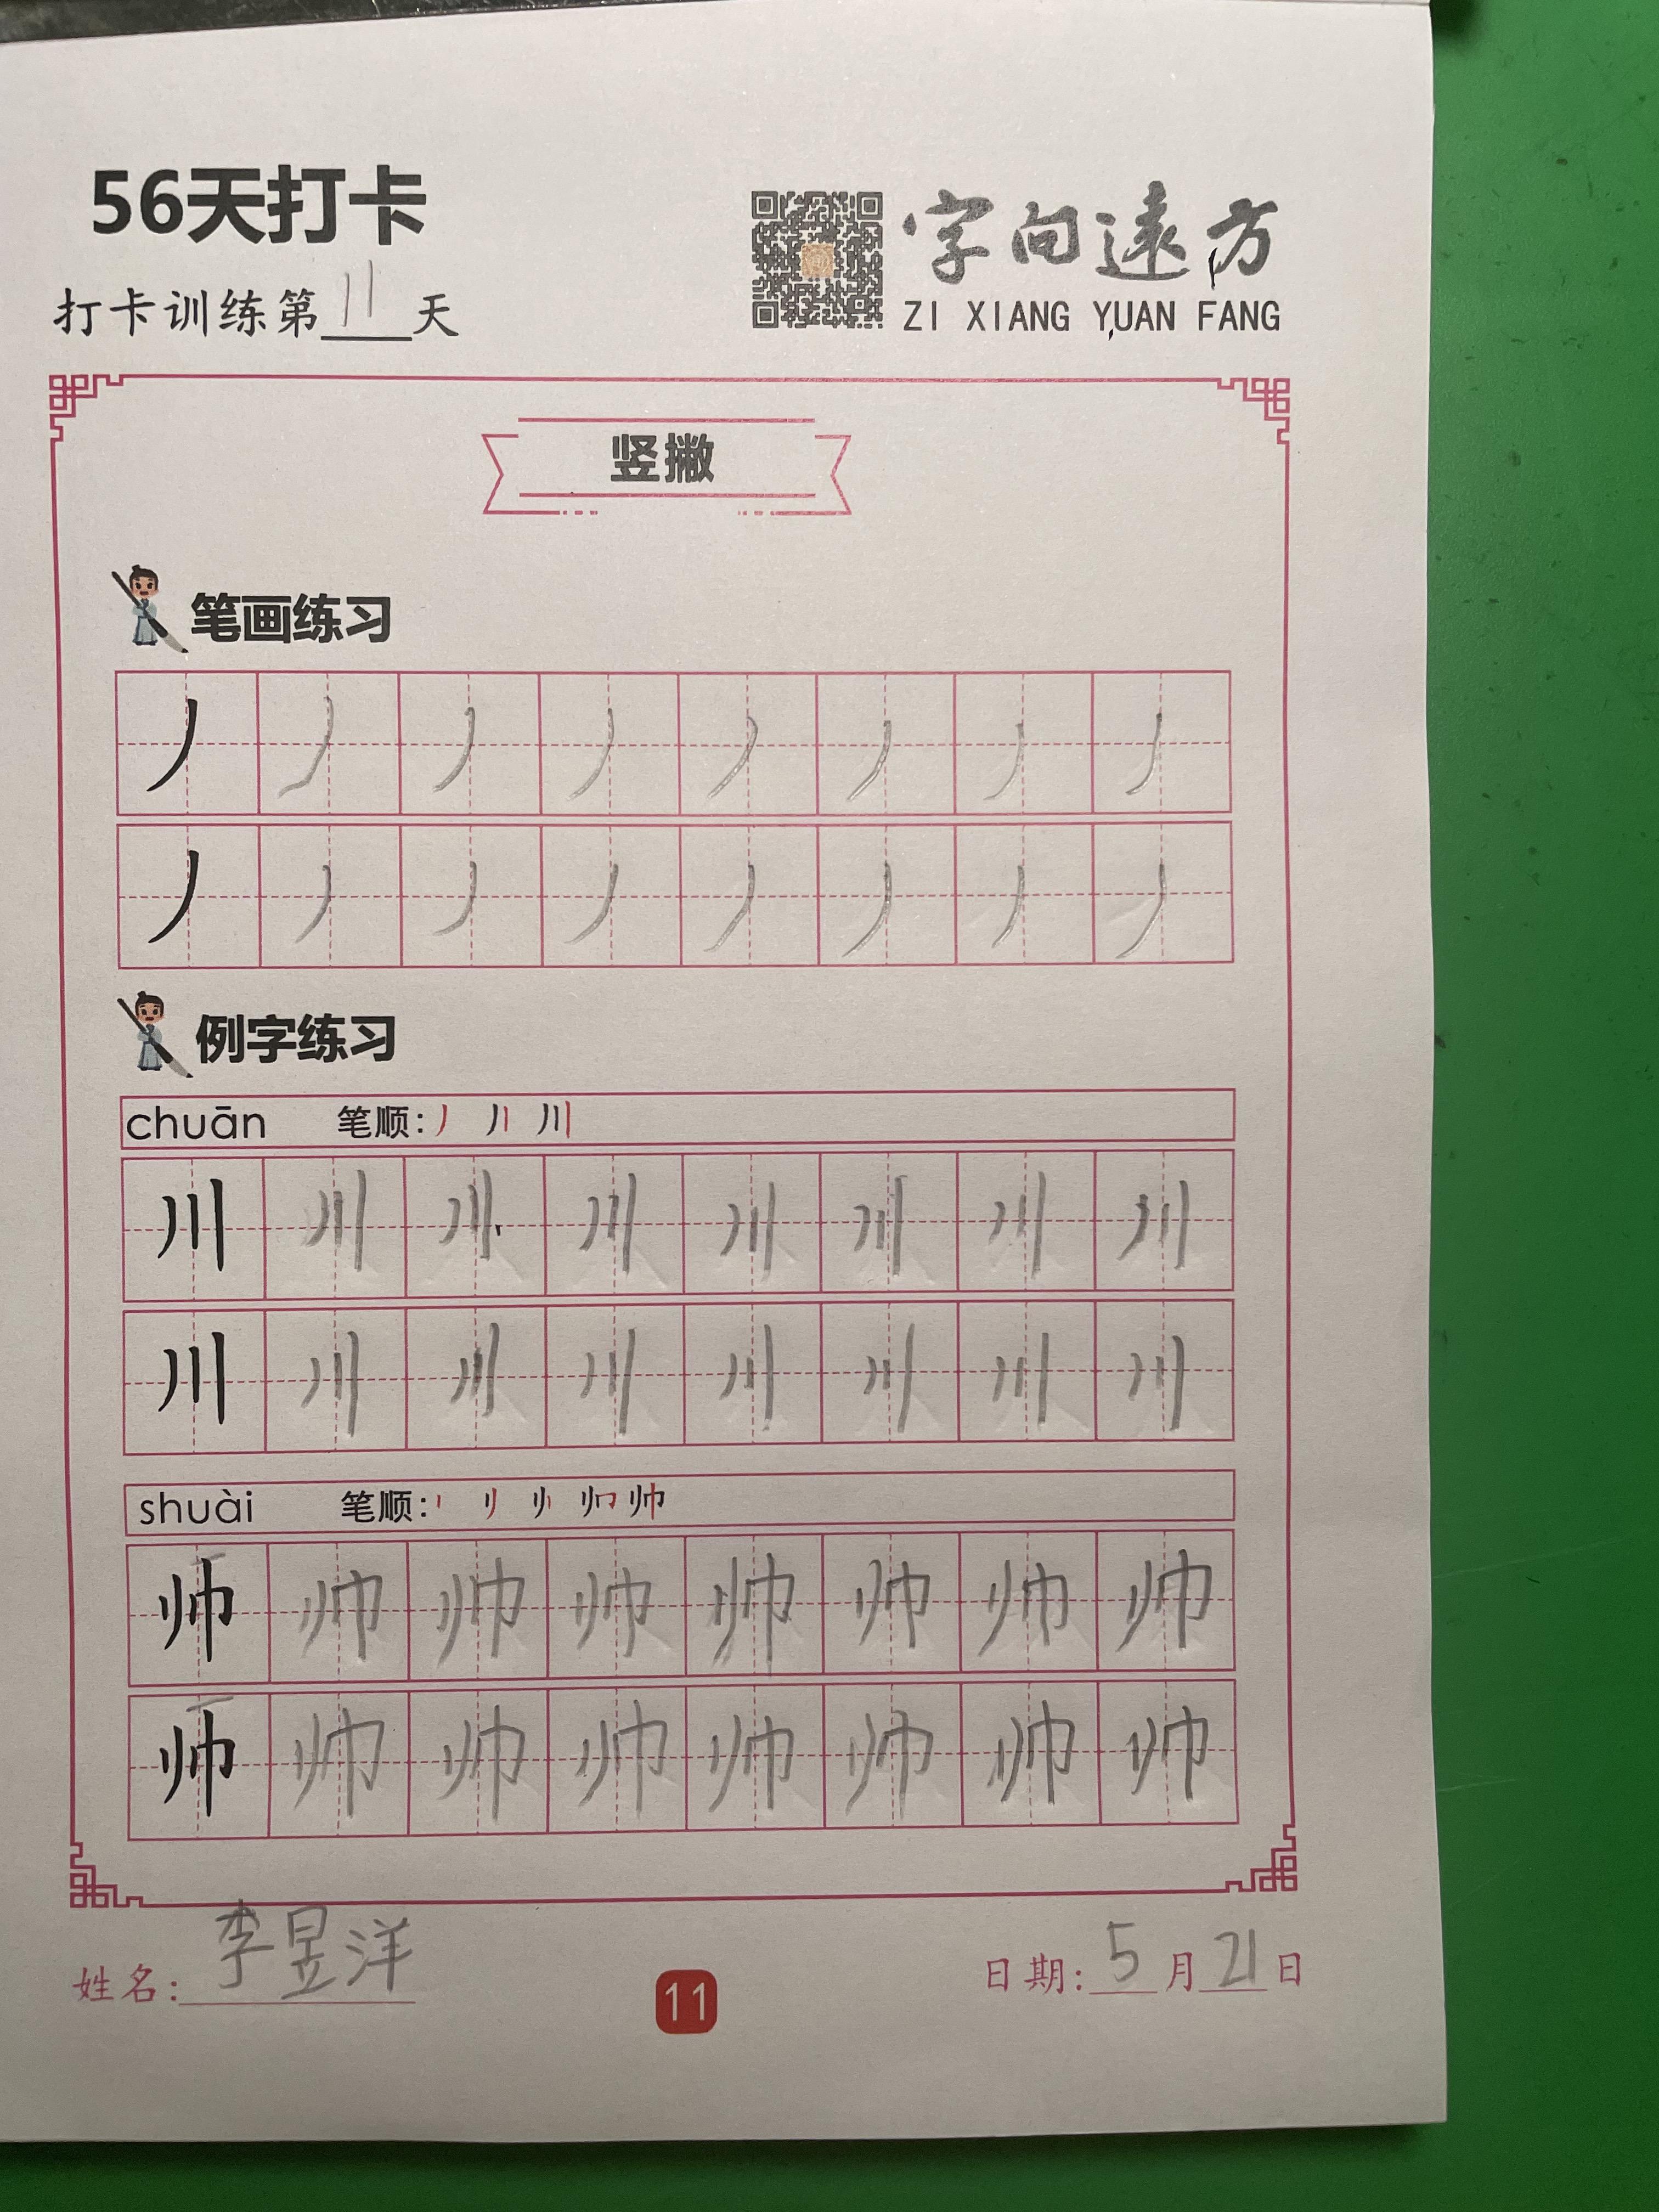 56天打卡
打卡训练第11天
字向遠方
ZI XIANG YUAN FANG
竖撇
笔画练习
丿丿丿丿丿丿丿丿
丿丿丿丿丿丿丿丿
例字练习
chuān 笔顺: 丿 丿丨 川
川川川川川川川川
川川川川川川川川
shuài 笔顺: 帅
帅帅帅帅帅帅帅帅
帅帅帅帅帅帅帅帅
姓名: 李昱洋
日期: 5月21日
11